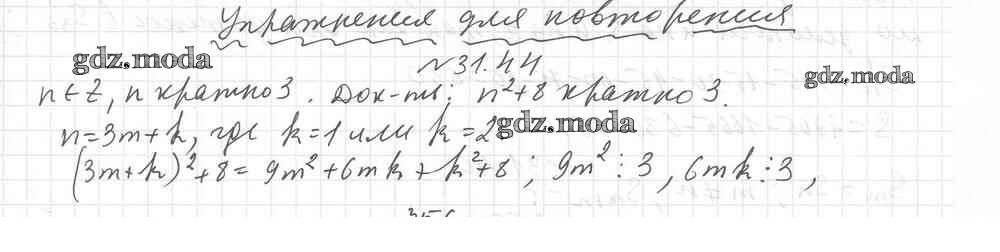 Упражнения для повторения
gdz.moda
№31.44
gdz.moda
n ∈ Z, n кратно 3. Док-ть: n²+8 кратно 3.
n=3m+k, где k=1 или k=2
gdz.moda
(3m+k)²+8= 9m²+6mk+k²+8; 9m²⋮3, 6mk⋮3,